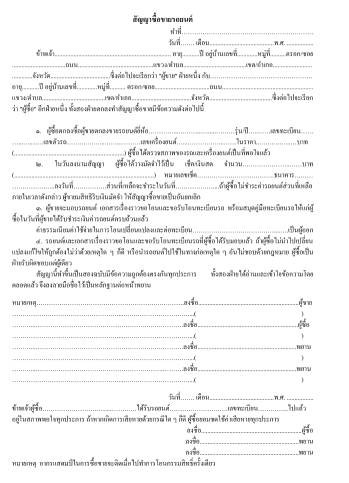 สัญญาซื้อขายรถยนต์
ทำที่..............................................................
วันที่........เดือน...............................พ.ศ. ..................
ข้าพเจ้า......................................................... อายุ.............ปี อยู่บ้านเลขที่.............หมู่ที่.........ตรอก/ซอย
..........................ถนน....................................แขวง/ตำบล................................เขต/อำเภอ....................
............จังหวัด............................ซึ่งต่อไปจะเรียกว่า "ผู้ขาย" ฝ่ายหนึ่ง กับ........................................
อายุ............ปี อยู่บ้านเลขที่............หมู่ที่............ตรอก/ซอย..........................ถนน............................
แขวง/ตำบล..........................เขต/อำเภอ..........................จังหวัด..............................ซึ่งต่อไปจะเรียก
ว่า "ผู้ซื้อ" อีกฝ่ายหนึ่ง ทั้งสองฝ่ายตกลงทำสัญญาซื้อขายมีข้อความดังต่อไปนี้
๑. ผู้ซื้อตกลงซื้อผู้ขายตกลงขายรถยนต์ยี่ห้อ....................................รุ่น/ปี..............เลขทะเบียน......
..............เลขตัวรถ..............................เลขเครื่องยนต์..........................ในราคา......................บาท
(..................................................) ผู้ซื้อได้ตรวจสภาพของรถและเครื่องยนต์เป็นที่พอใจแล้ว
๒. ในวันลงนามสัญญา ผู้ซื้อได้วางมัดจำไว้เป็น เช็ค/เงินสด จำนวน..........................บาท
(..................................................) หมายเลขเช็ค..............................ธนาคาร.................
..................ลงวันที่....................ส่วนที่เหลือจะชำระในวันที่....................ถ้าผู้ซื้อไม่ชำระค่ารถยนต์ส่วนที่เหลือ
ภายในเวลาดังกล่าว ผู้ขายมีสิทธิริบเงินมัดจำ ให้สัญญาซื้อขายเป็นอันยกเลิก
๓. ผู้ขายจะมอบรถยนต์ เอกสารเรื่องราวขอโอนและขอรับโอนทะเบียนรถ พร้อมสมุดคู่มือทะเบียนให้แก่ผู้
ซื้อในวันที่ผู้ขายได้รับชำระเงินค่ารถยนต์ครบถ้วนแล้ว
ค่าธรรมเนียมค่าใช้จ่ายในการโอนเปลี่ยนแปลงและต่อทะเบียน............................................เป็นผู้ออก
๔. รถยนต์และเอกสารเรื่องราวขอโอนและขอรับโอนทะเบียนรถที่ผู้ซื้อได้รับมอบแล้ว ถ้าผู้ซื้อไม่นำไปเปลี่ยน
แปลงแก้ไขให้ถูกต้องไม่ว่าด้วยเหตุใด ๆ ก็ดี หรือนำรถยนต์ไปใช้ในทางก่อเหตุใด ๆ อันไม่ชอบด้วยกฎหมาย ผู้ซื้อเป็น
ฝ่ายรับผิดชอบแต่ผู้เดียว
สัญญานี้ทำขึ้นเป็นสองฉบับมีข้อความถูกต้องตรงกันทุกประการ ทั้งสองฝ่ายได้อ่านและเข้าใจข้อความโดย
ตลอดแล้ว จึงลงลายมือชื่อไว้เป็นหลักฐานต่อหน้าพยาน
หมายเหตุ.......................................................ลงชื่อ............................................ผู้ขาย
..............................................................( )
..............................................................ลงชื่อ............................................ผู้ซื้อ
..............................................................( )
..............................................................ลงชื่อ............................................พยาน
..............................................................( )
..............................................................ลงชื่อ............................................พยาน
..............................................................( )
วันที่........เดือน...............................พ.ศ. ..................
ข้าพเจ้าผู้ซื้อ..........................................ได้รับรถยนต์..........................เลขทะเบียน..............ไปแล้ว
อยู่ในสภาพพอใจทุกประการ ถ้าหากเกิดการเสียหายด้วยกรณีใด ๆ ก็ดี ผู้ซื้อยอมชดใช้ค่าเสียหายทุกประการ
ลงชื่อ............................................ผู้ซื้อ
ลงชื่อ............................................พยาน
ลงชื่อ............................................พยาน
หมายเหตุ อากรแสตมป์ในการซื้อขายจะติดเมื่อไปทำการโอนกรรมสิทธิ์ครั้งเดียว